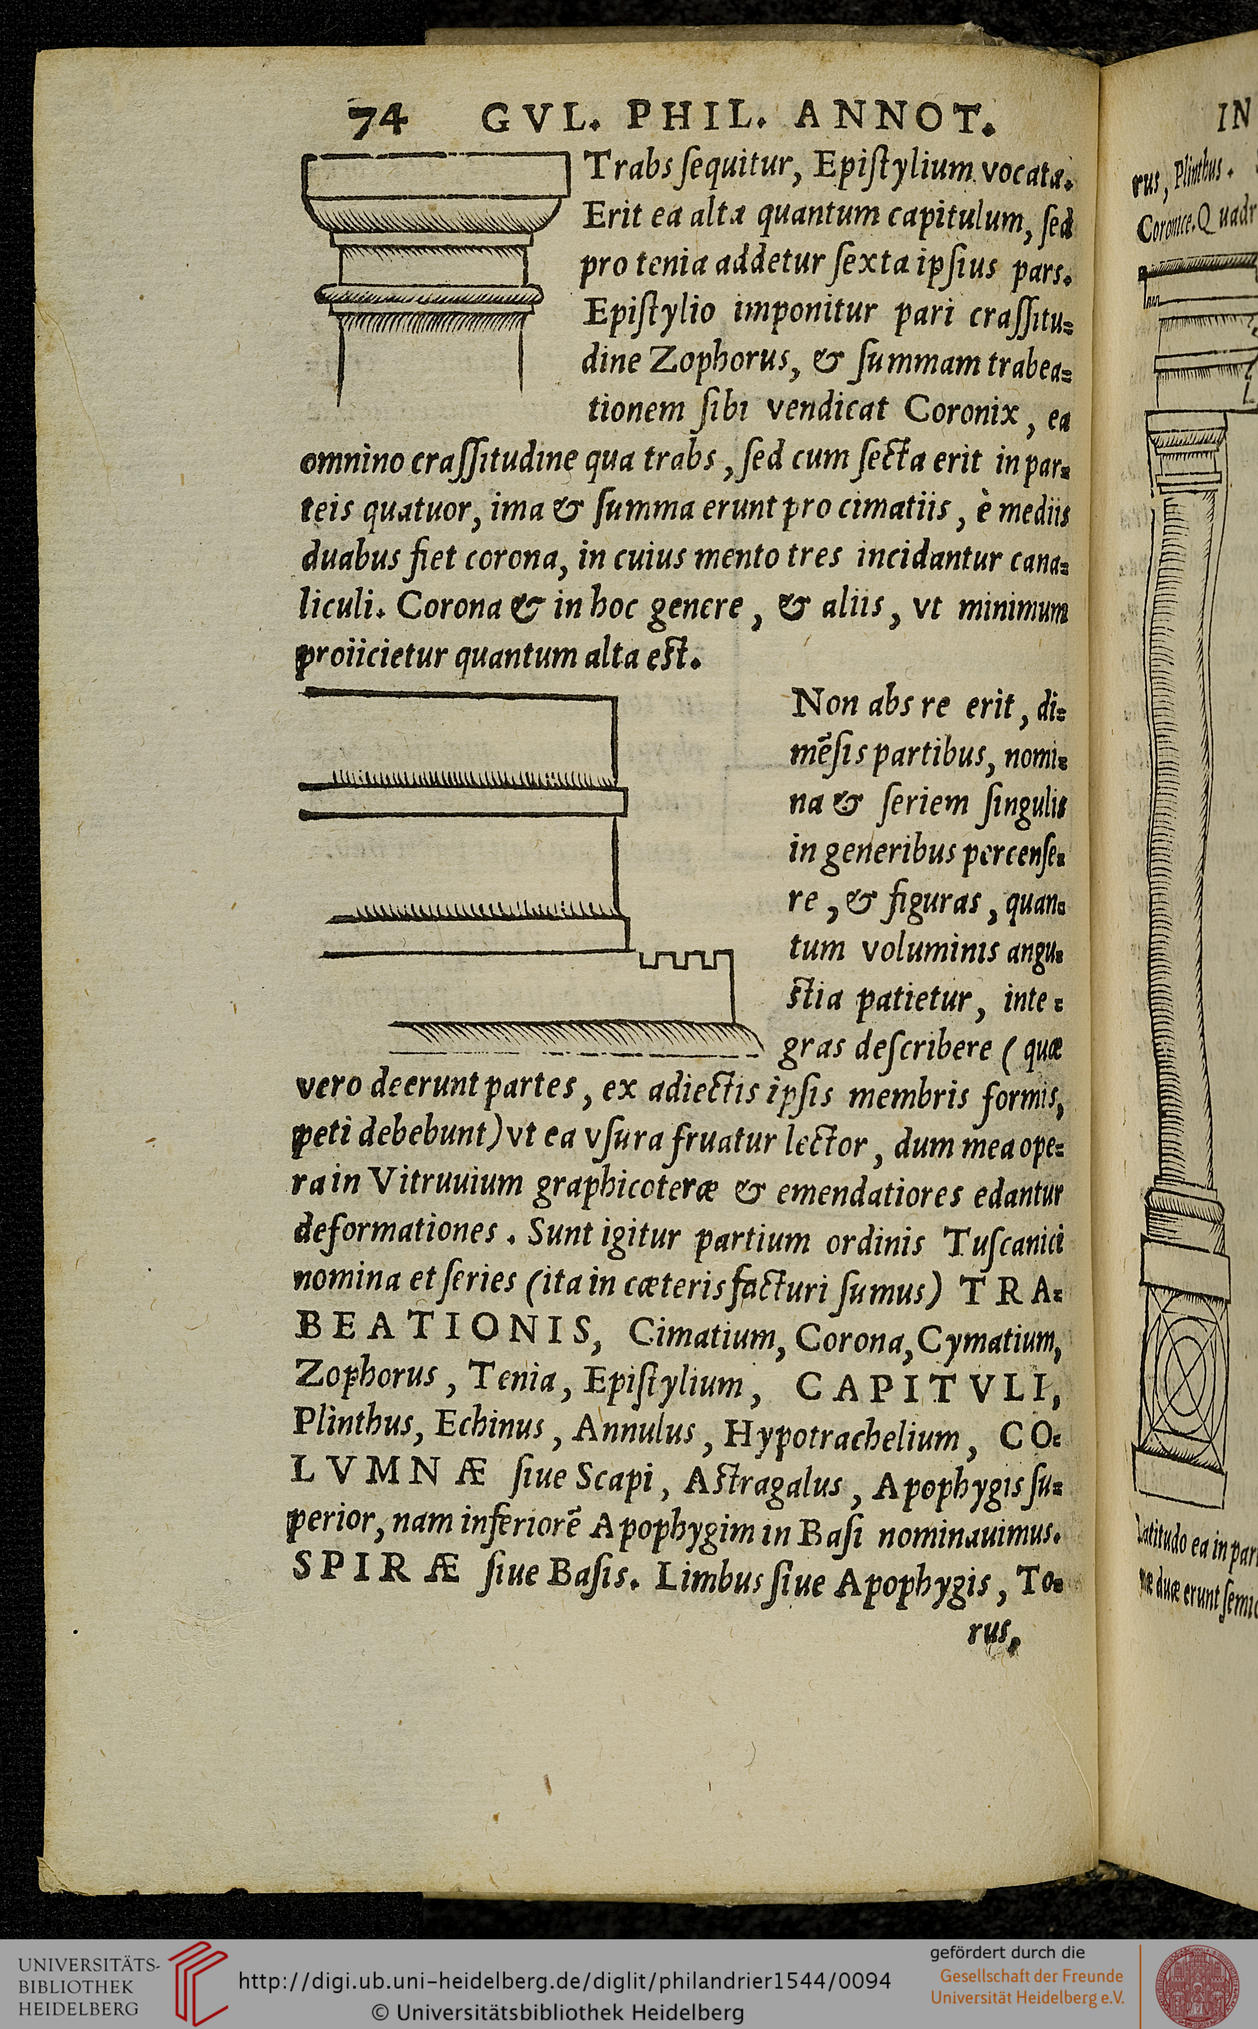 74 GVL. PHIL. ANNOT.
Trabs ſequitur, Epiſtylium vocata.
Erit ea alta quantum capitulum, ſed
pro tenia addetur ſexta ipſius pars.
Epiſtylio imponitur pari craſſitu=
dine Zophorus, & ſummam trabea=
tionem ſibi vendicat Coronix, ea
omnino craſſitudine qua trabs, ſed cum ſecta erit in par=
teis quatuor, ima & ſumma erunt pro cimatiis, è mediis
duabus fiet corona, in cuius mento tres incidantur cana=
liculi. Corona & in hoc genere, & aliis, vt minimum
proiicietur quantum alta est.
Non abs re erit, di=
mēſis partibus, nomi=
na & ſeriem ſingulis
in generibus percenſe=
re, & figuras, quan=
tum voluminis angu=
stia patietur, inte=
gras deſcribere (quæ
vero deerunt partes, ex adiectis ipſis membris formis,
peti debebunt) vt ea vſura fruatur lector, dum mea ope=
ra in Vitruuium graphicoteræ & emendatiores edantur
deformationes. Sunt igitur partium ordinis Tuſcanici
nomina et ſeries (ita in cæteris facturi ſumus) TRA=
BEATIONIS, Cimatium, Corona, Cymatium,
Zophorus, Tenia, Epiſtylium, CAPITVLI,
Plinthus, Echinus, Annulus, Hypotrachelium, CO=
LVMNÆ ſiue Scapi, Astragalus, Apophygis ſu=
perior, nam inferiorē Apophygim in Baſi nominauimus.
SPIRÆ ſiue Baſis. Limbus ſiue Apophygis, To=
rus,
IN
rus, Plinthus.
Coronice. Quadr
Latitudo ea in par
duæ erunt ſemi
UNIVERSITÄTS-
BIBLIOTHEK
HEIDELBERG
http://digi.ub.uni-heidelberg.de/diglit/philandrier1544/0094
© Universitätsbibliothek Heidelberg
gefördert durch die
Gesellschaft der Freunde
Universität Heidelberg e.V.